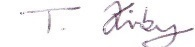 T. Kirby